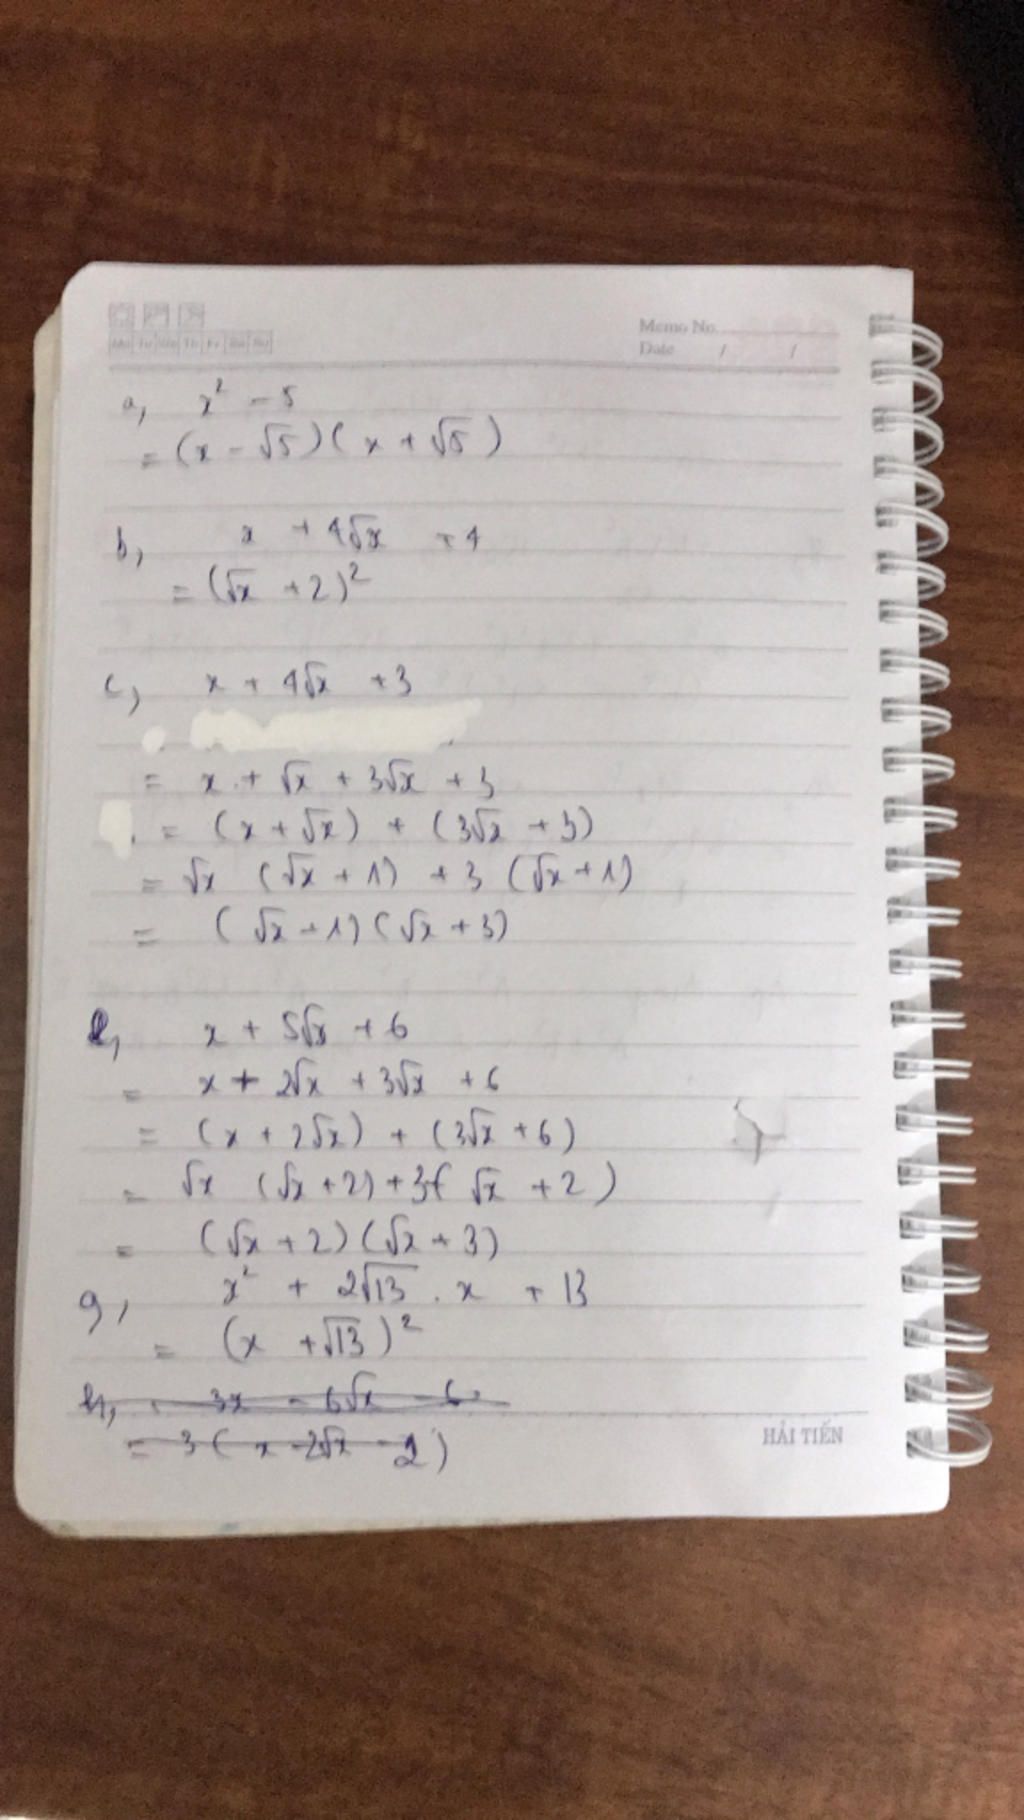 Mo Tu We Th Fr Sa Su
Memo No.
Date / /
a, x² - 5
= (x - √5)(x + √5)
b, x + 4√x + 4
= (√x + 2)²
c, x + 4√x + 3
= x + √x + 3√x + 3
= (x + √x) + (3√x + 3)
= √x (√x + 1) + 3 (√x + 1)
= (√x + 1)(√x + 3)
e, x + 5√x + 6
= x + 2√x + 3√x + 6
= (x + 2√x) + (3√x + 6)
= √x (√x + 2) + 3( √x + 2 )
= (√x + 2)(√x + 3)
g, x² + 2√13 . x + 13
= (x + √13)²
h, 3x - 6√x - 6
= 3 ( x - 2√x - 2 )
HẢI TIẾN